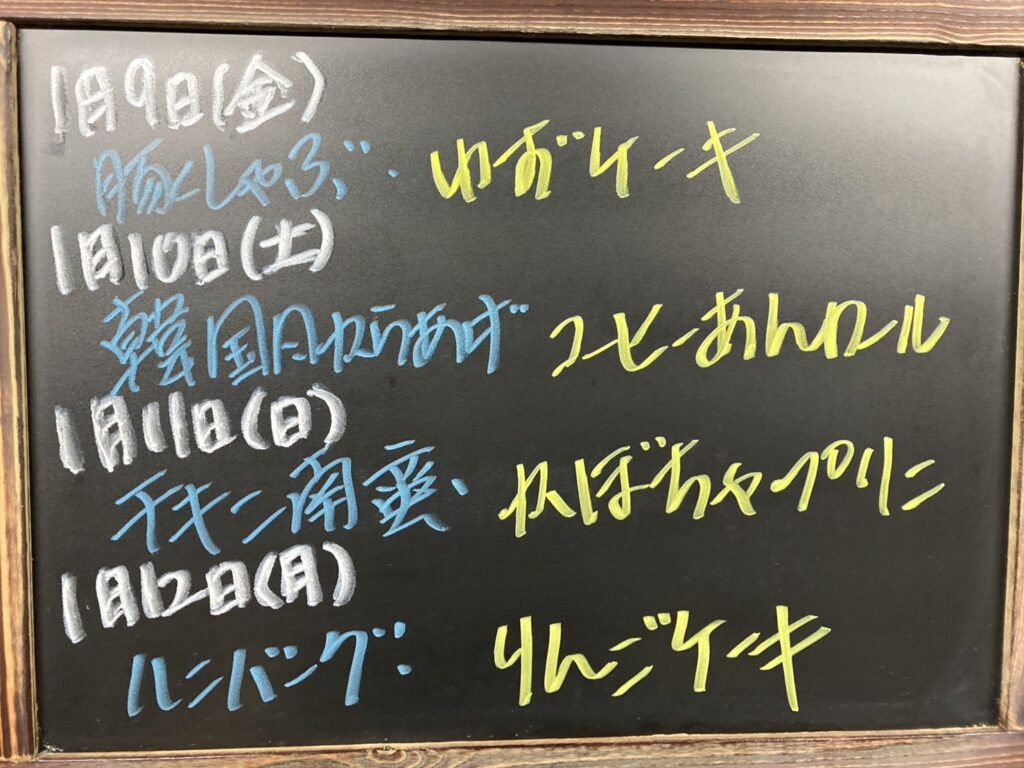 1月9日(金)
豚しゃぶ・ ゆずケーキ
1月10日(土)
韓国風からあげ コーヒーあんロール
1月11日(日)
チキン南蛮、 かぼちゃプリン
1月12日(月)
ハンバーグ: りんごケーキ